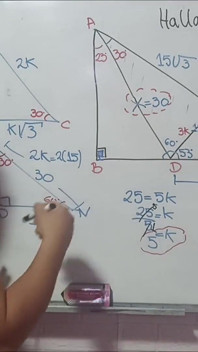 Halla
2K
A
25 30
15√3
30
C
K√3
x=30
3k
2k=2(15)
30
60
D
55
B
N
25=5k
25/5=k
5=k